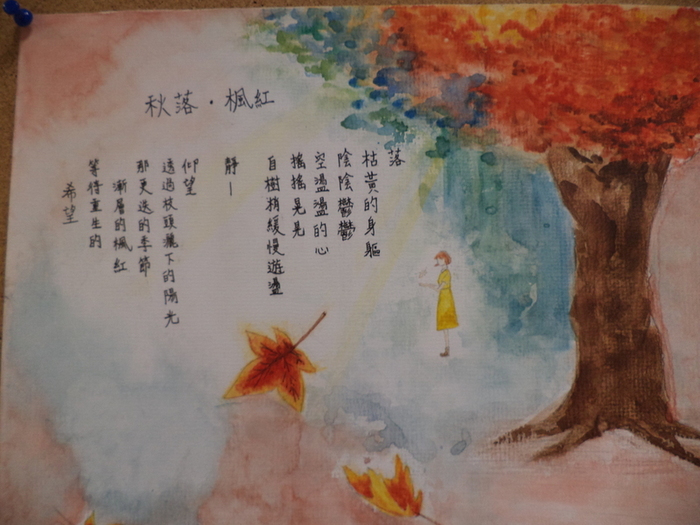 秋落·楓紅
落
枯黃的身軀
陰陰鬱鬱
空盪盪的心
搖搖晃晃
自樹梢緩慢遊盪
靜—
仰望
透過枝頭灑下的陽光
那更迭的季節
漸層的楓紅
等待重生的
希望